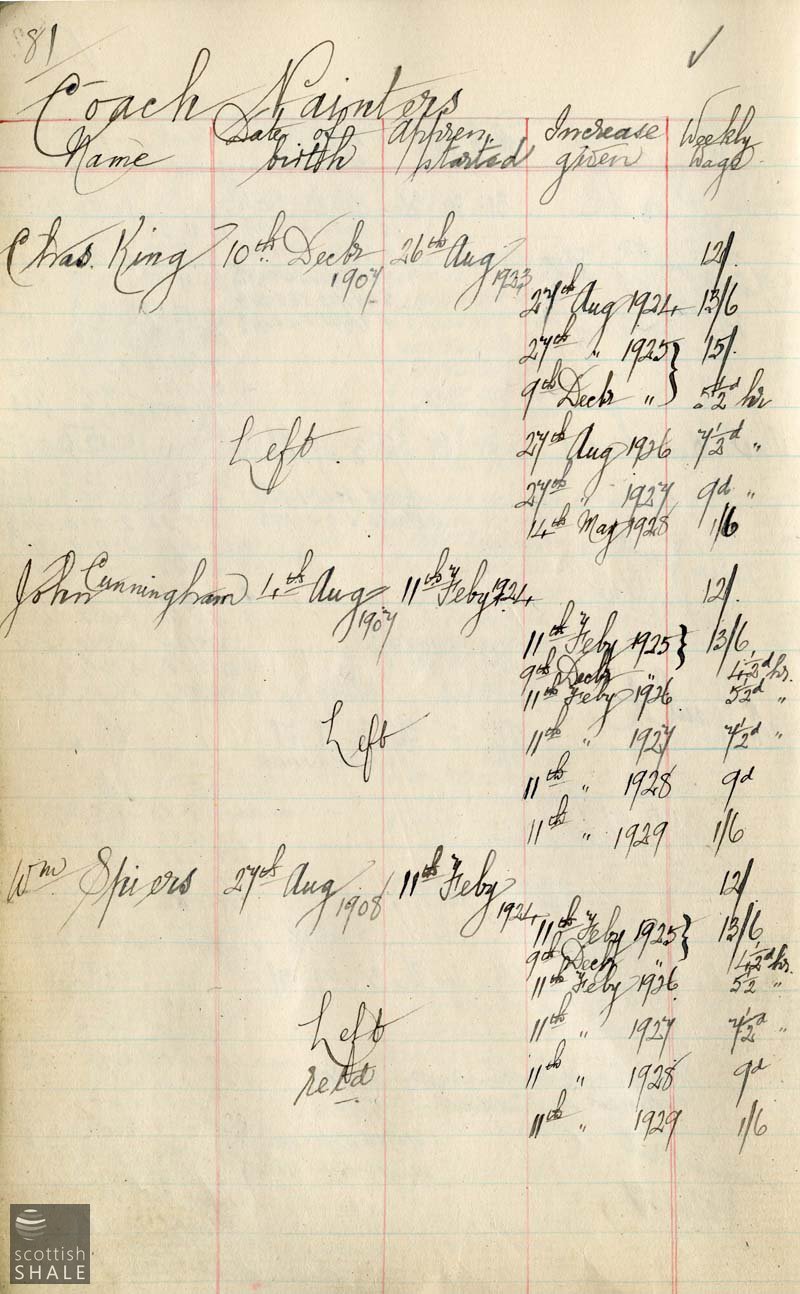 81
Coach Painters
Name Date of birth Appren. started Increase given Weekly wage
Chas. King 10th Decbr 1907 26th Aug 1923 12/.
27th Aug 1924 13/6
27th " 1925 } 15/.
9th Decbr " } 5½d hr
Left. 27th Aug 1926 7½d "
27th " 1927 9d "
14th May 1928 1/6
John Cunningham 4th Aug 1907 11th Feby 1924 12/.
11th Feby 1925 } 13/6
9th Decbr " } 4½d hr.
11th Feby 1926 5½d "
Left 11th " 1927 7½d "
11th " 1928 9d
11th " 1929 1/6
Wm Spiers 27th Aug 1908 11th Feby 1924 12/
11th Feby 1925 } 13/6
9th Decbr " } 4½d hr.
11th Feby 1926 5½ "
Left 11th " 1927 7½d "
retd 11th " 1928 9d
11th " 1929 1/6
scottish
SHALE